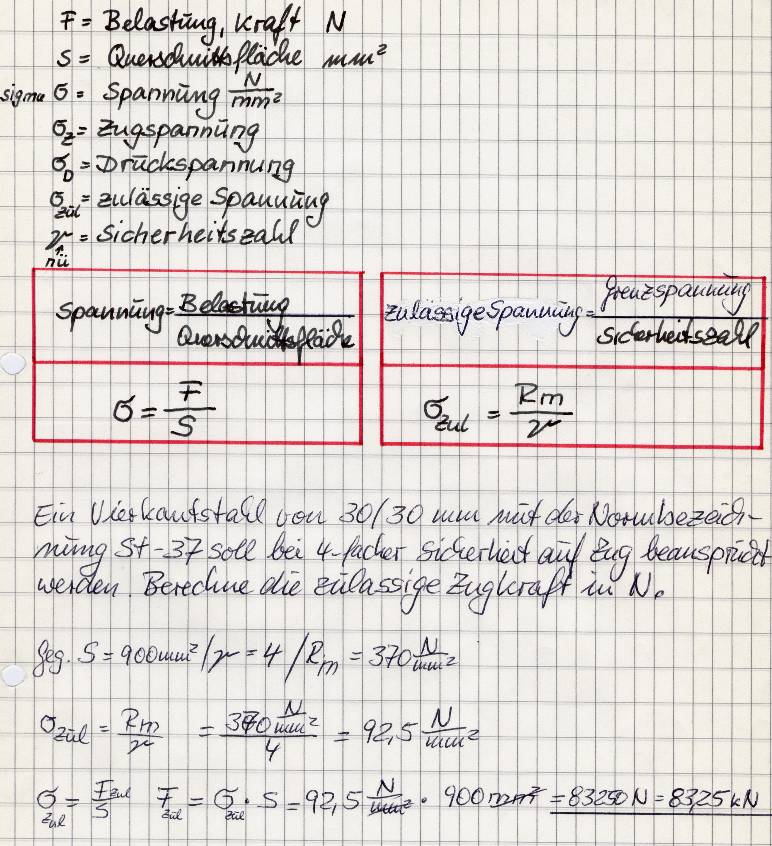 F = Belastung, Kraft N
S = Querschnittsfläche mm²
sigma σ = Spannung N/mm²
σz = Zugspannung
σD = Druckspannung
σzul = zulässige Spannung
ν = Sicherheitszahl
↑
nü
Spannung = Belastung / Querschnittsfläche
zulässige Spannung = Grenzspannung / Sicherheitszahl
σ = F / S
σzul = Rm / ν
Ein Vierkantstahl von 30/30 mm mit der Normbezeich-
nung St-37 soll bei 4-facher Sicherheit auf Zug beansprucht
werden. Berechne die zulässige Zugkraft in N.
Geg. S = 900 mm² / ν = 4 / Rm = 370 N/mm²
σzul = Rm / ν = 370 N/mm² / 4 = 92,5 N/mm²
σzul = Fzul / S Fzul = σzul · S = 92,5 N/mm² · 900 mm² = 83250 N = 83,25 kN